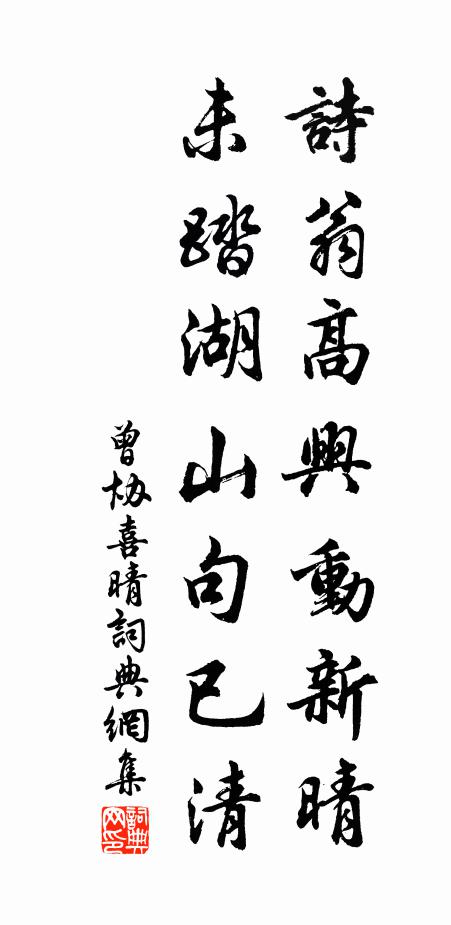 詩翁高興動新晴
未踏湖山句已清
曾協喜晴詞典網集
詞典网印